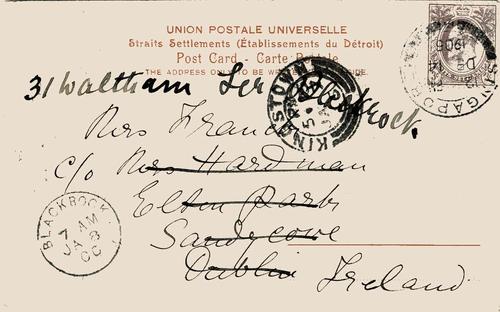 UNION POSTALE UNIVERSELLE
Straits Settlements (Établissements du Détroit)
Post Card - Carte Postale
THE ADDRESS ONLY TO BE WRITTEN ON THIS SIDE.
SINGAPORE
DE
1905
31 Waltham Ter Blackrock
KINGSTOWN
Mrs Franc
c/o Mrs Hardman
Elton Park
BLACKROCK
7 AM
JA 3
Sandycove
Dublin Ireland